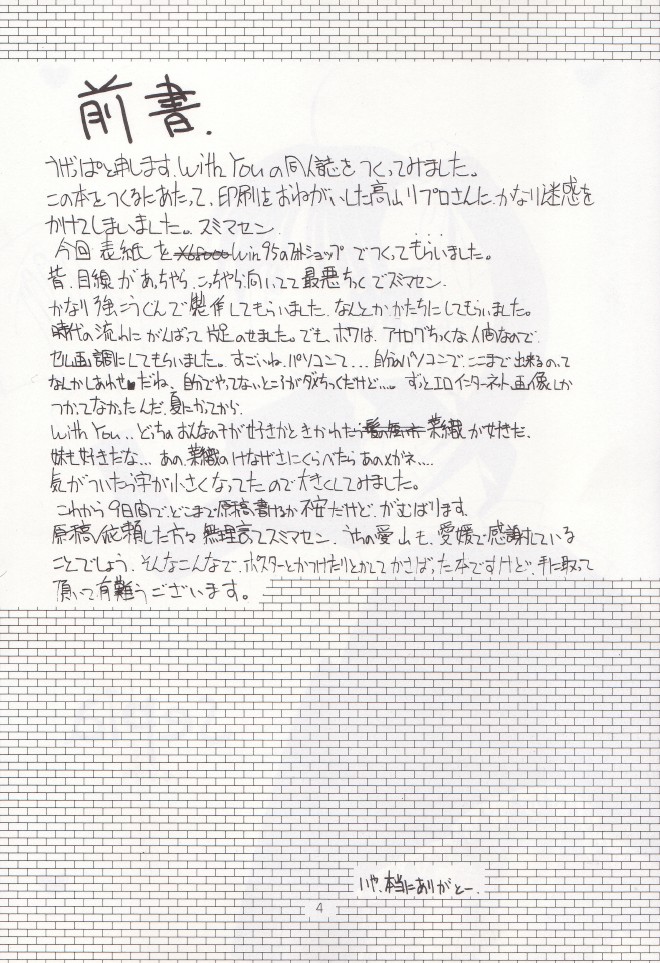 前書.
うげっぱと申します。With Youの同人誌をつくってみました。
この本をつくるにあたって、印刷をおねがいした高山リプロさんに、かなり迷惑を
かけてしまいました。スミマセン.
今回 表紙を X68000 Win95のフォトショップ でつくってもらいました。
昔、目線があっちゃら、こっちゃら向いてて最悪ちっくでズミマセン.
かなり強こうぐんで製作してもらいました、なんとかかたちにしてもらいました。
時代の流れにがんばって片足のせました。でも、ボクは、アナログちっくな人間なので、
セル画調にしてもらいました。すごいね、パソコンて...自分のパソコンで、ここまで出来るのって
なんかしあわせ♥だね、自分でやってないところがダメちっくだけど...。ずっとエロインターネット画像しか
つかってなかったんだ、夏にかってから.
With You..どっちのおんなの子が好きかときかれたら 菜織が好きだ、
妹も好きだな...あの、菜織のけなげさにくらべたらあのメガネ....
気がついたら字が小さくなってたので大きくしてみました。
これから9日間で、どこまで原稿書けるか不安だけど、がむばります.
原稿依頼した方々 無理言ってスミマセン、うちの愛山も、愛媛で感謝している
ことでしょう、そんなこんなで、ポスターとかつけたりとかしてかさばった本ですけど、手に取って
頂いて有難うございます。
いや、本当にありがとー.
4